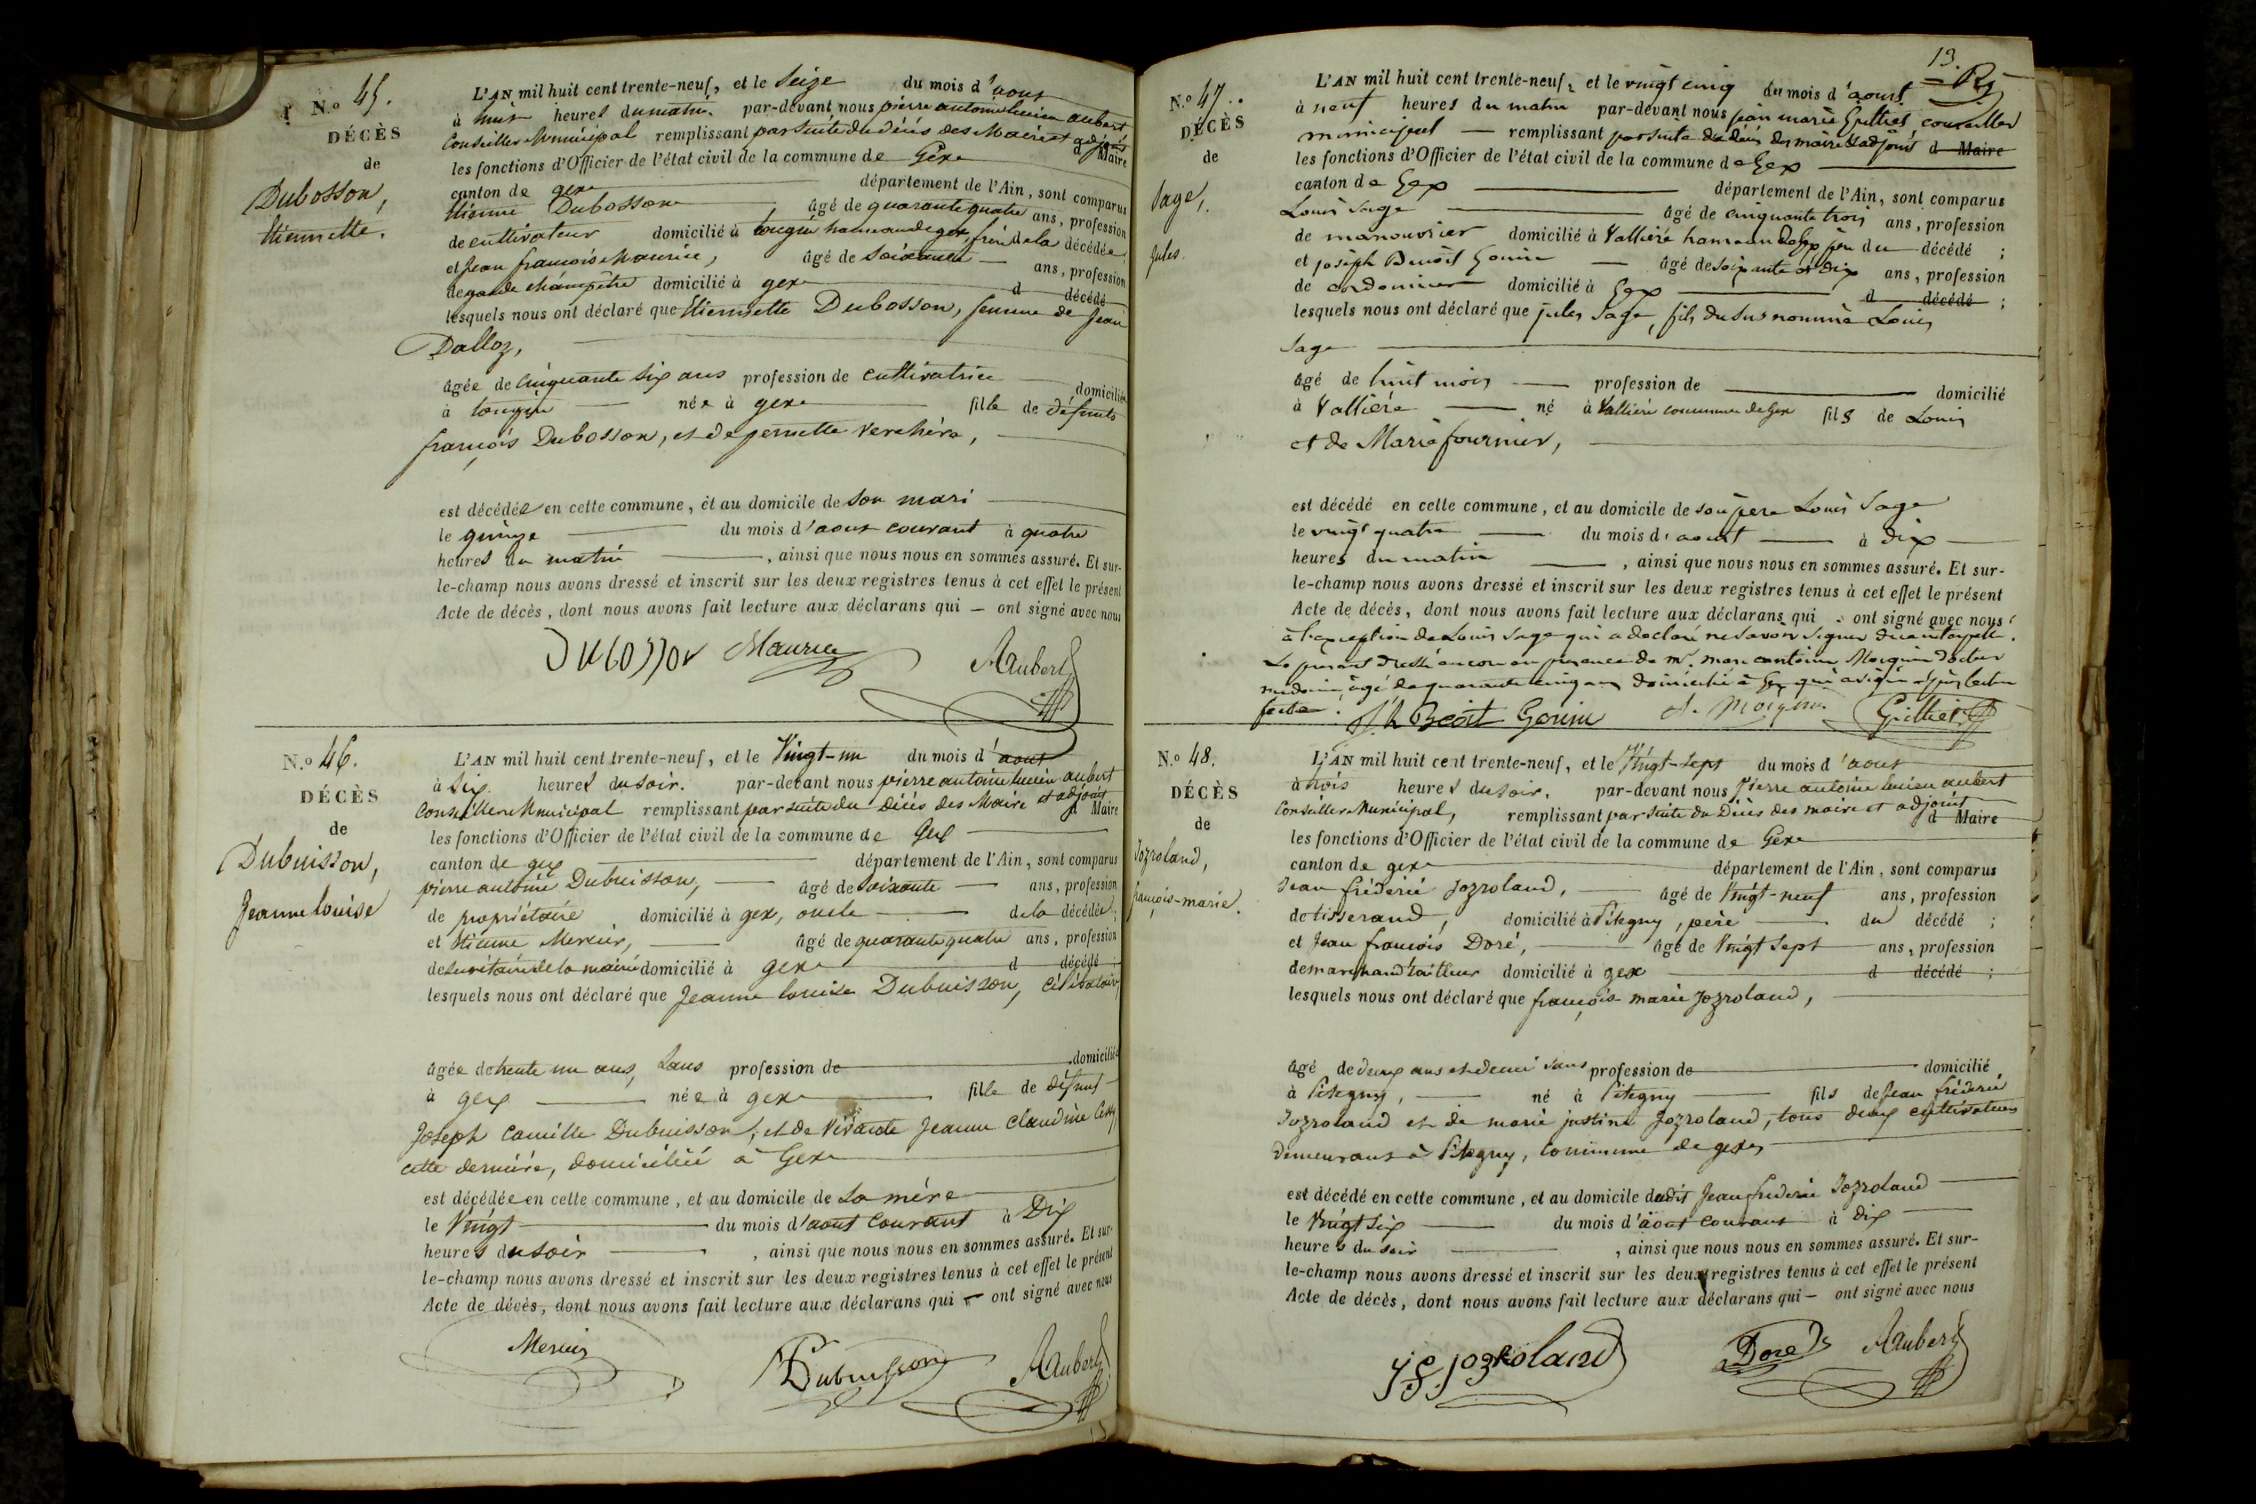 N.º 45.
DÉCÈS
de
Dubosson,
Etiennette.
L'AN mil huit cent trente-neuf, et le Seize du mois d'aout
à huit heures du matin. par-devant nous pierre antoine lucien aubert
Conseiller Municipal remplissant par suite du décès des Maire et adjoint d Maire
les fonctions d'Officier de l'état civil de la commune de Gex
canton de gex département de l'Ain, sont comparus
Etienne Dubosson âgé de quarante quatre ans, profession
de cultivateur domicilié à tougin hameau de gex, frère de la décédée
et Jean françois Maurice, âgé de Soixante ans, profession
de garde champêtre domicilié à gex d décédé
lesquels nous ont déclaré que Etiennette Dubosson, femme de Jean
Dalloz,
âgée de Cinquante Six ans profession de cultivatrice domiciliée
à tougin née à gex fille de défunts
françois Dubosson, et de pernette Verchère,
est décédée en cette commune, et au domicile de son mari
le quinze du mois d'aout courant à quatre
heures du matin, ainsi que nous nous en sommes assuré. Et sur-
le-champ nous avons dressé et inscrit sur les deux registres tenus à cet effet le présent
Acte de décès, dont nous avons fait lecture aux déclarans qui — ont signé avec nous
Dubosson Maurice Aubert
N.º 46.
DÉCÈS
de
Dubuisson,
Jeanne louise
L'AN mil huit cent trente-neuf, et le Vingt-un du mois d'aout
à Six heures du soir. par-devant nous pierre antoine lucien aubert
Conseiller Municipal remplissant par suite du décès des Maire et adjoint d Maire
les fonctions d'Officier de l'état civil de la commune de Gex
canton de gex département de l'Ain, sont comparus
pierre antoine Dubuisson, âgé de Soixante ans, profession
de propriétaire domicilié à gex, oncle de la décédée;
et Etienne Mercier, âgé de quarante quatre ans, profession
de secrétaire de la mairie domicilié à gex d décédé;
lesquels nous ont déclaré que Jeanne louise Dubuisson, célibataire,
âgée de trente un ans, Sans profession de domiciliée
à gex née à gex fille de défunt
Joseph Camille Dubuisson, et de vivante Jeanne Claudine
cette dernière, domiciliée à Gex
est décédée en cette commune, et au domicile de Sa mère
le Vingt du mois d'aout courant à Dix
heures du soir, ainsi que nous nous en sommes assuré. Et sur-
le-champ nous avons dressé et inscrit sur les deux registres tenus à cet effet le présent
Acte de décès, dont nous avons fait lecture aux déclarans qui — ont signé avec nous
Mercier Dubuisson Aubert
13.
N.º 47.
DÉCÈS
de
Sage,
jules.
L'AN mil huit cent trente-neuf, et le vingt cinq du mois d'aout
à neuf heures du matin par-devant nous jean marie Gilliet conseiller
municipal — remplissant par suite du décès des maire et adjoint d Maire
les fonctions d'Officier de l'état civil de la commune de Gex
canton de Gex département de l'Ain, sont comparus
Louis Sage âgé de cinquante trois ans, profession
de manouvrier domicilié à Vallière hameau de Gex père du décédé;
et joseph Benoit Gonin — âgé de soixante et dix ans, profession
de cordonnier domicilié à Gex d décédé;
lesquels nous ont déclaré que jules Sage, fils du susnommé Louis
Sage
âgé de huit mois — profession de domicilié
à Vallière né à Vallière commune de Gex fils de Louis
et de Marie fournier,
est décédé en cette commune, et au domicile de son père Louis Sage
le vingt quatre du mois d'aout à dix
heures du matin, ainsi que nous nous en sommes assuré. Et sur-
le-champ nous avons dressé et inscrit sur les deux registres tenus à cet effet le présent
Acte de décès, dont nous avons fait lecture aux déclarans qui ont signé avec nous
à l'exception de Louis Sage qui a déclaré ne savoir signer de ce interpellé.
Le présent dressé encore en présence de Mr. marc antoine docteur
médecin, âgé de quarante cinq ans domicilié à Gex qui a signé après lecture
faite. Benoit Gonin Gilliet
N.º 48.
DÉCÈS
de
Jozroland,
françois-marie.
L'AN mil huit cent trente-neuf, et le Vingt-Sept du mois d'aout
à trois heures du soir. par-devant nous Pierre antoine lucien aubert
Conseiller Municipal, remplissant par suite du Décès des maire et adjoint d Maire
les fonctions d'Officier de l'état civil de la commune de Gex
canton de gex département de l'Ain, sont comparus
Jean fréderic Jozroland, âgé de Vingt-neuf ans, profession
de tisserand, domicilié à Pitegny, père du décédé;
et Jean françois Doré, âgé de Vingt Sept ans, profession
de marchand tailleur domicilié à gex d décédé;
lesquels nous ont déclaré que françois marie Jozroland,
âgé de deux ans et demi sans profession de domicilié
à Pitegny, né à Pitegny fils de Jean fréderic
Jozroland et de marie justine Jozroland, tous deux cultivateurs
demeurant à Pitegny, commune de gex,
est décédé en cette commune, et au domicile dudit Jean frederic Jozroland
le Vingt Six du mois d'aout courant à dix
heures du soir, ainsi que nous nous en sommes assuré. Et sur-
le-champ nous avons dressé et inscrit sur les deux registres tenus à cet effet le présent
Acte de décès, dont nous avons fait lecture aux déclarans qui — ont signé avec nous
Jozroland Doré Aubert